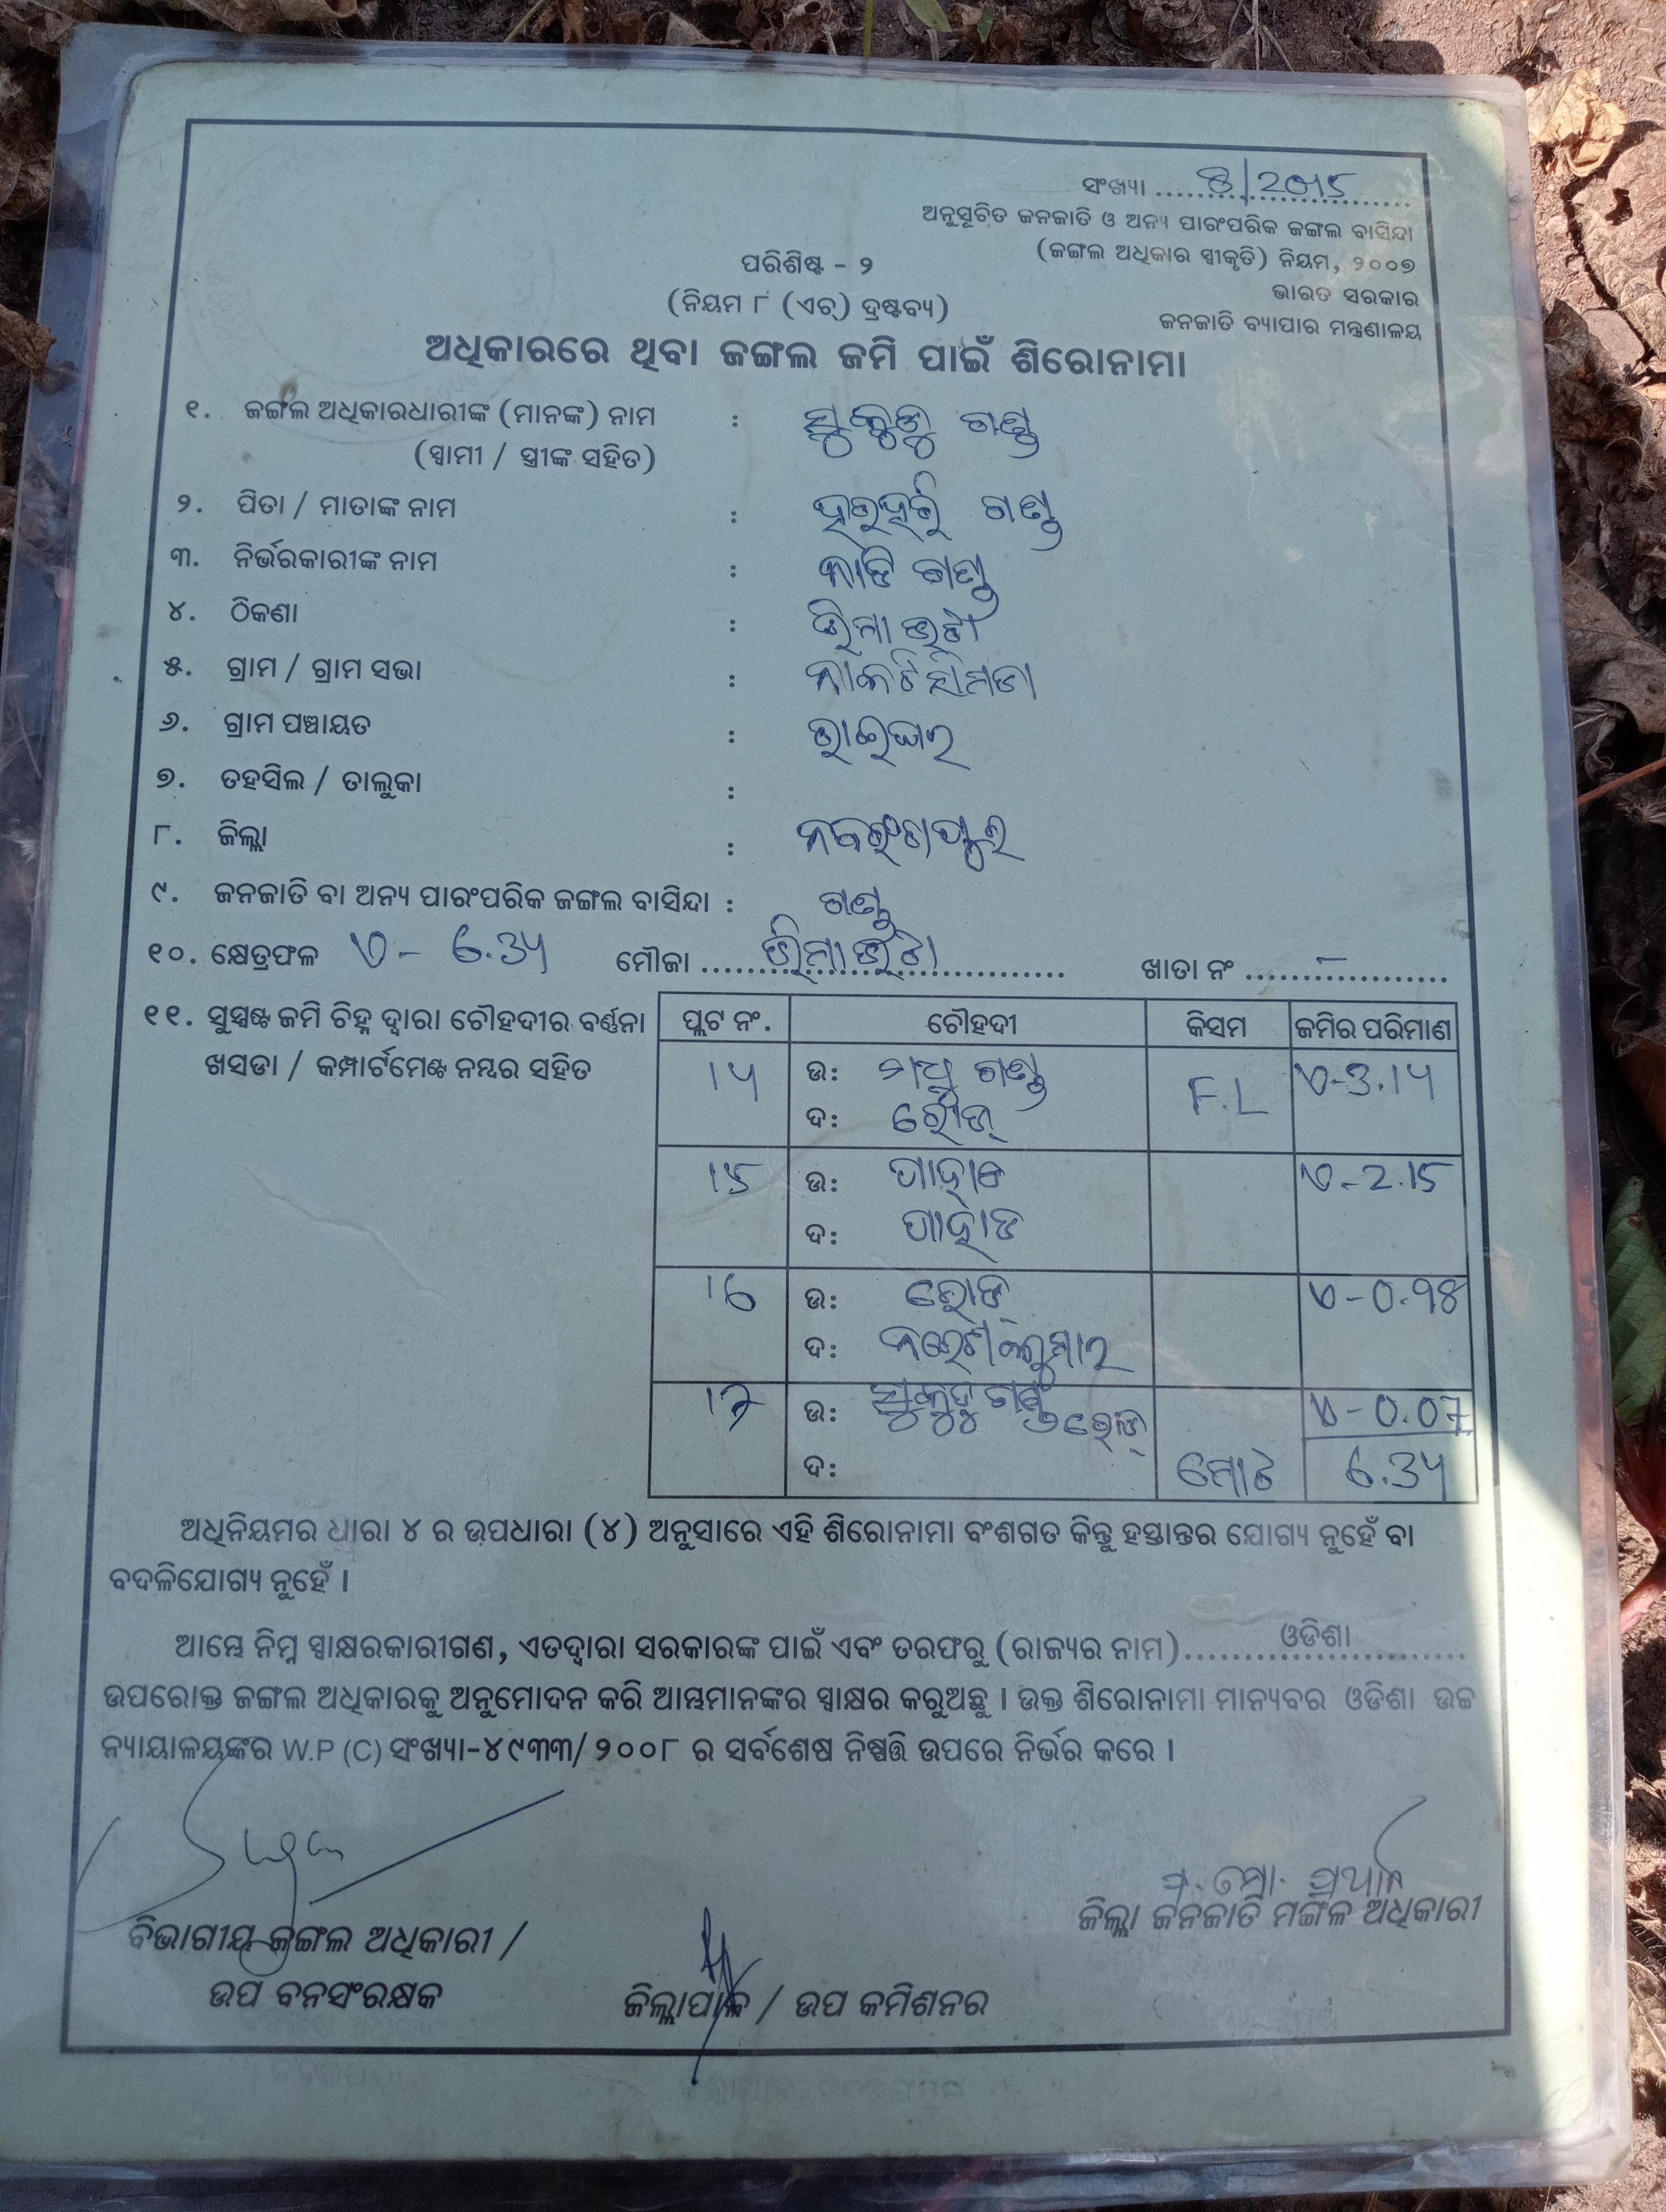 ସଂଖ୍ୟା ........ 8/2015
ଅନୁସୂଚିତ ଜନଜାତି ଓ ଅନ୍ୟ ପାରଂପରିକ ଜଙ୍ଗଲ ବାସିନ୍ଦା
(ଜଙ୍ଗଲ ଅଧିକାର ସ୍ୱୀକୃତି) ନିୟମ, ୨୦୦୭
ଭାରତ ସରକାର
ଜନଜାତି ବ୍ୟାପାର ମନ୍ତ୍ରଣାଳୟ
ପରିଶିଷ୍ଟ - ୨
(ନିୟମ ୮ (ଏଚ୍) ଦ୍ରଷ୍ଟବ୍ୟ)
ଅଧିକାରରେ ଥିବା ଜଙ୍ଗଲ ଜମି ପାଇଁ ଶିରୋନାମା
୧. ଜଙ୍ଗଲ ଅଧିକାରଧାରୀଙ୍କ (ମାନଙ୍କ) ନାମ : ଗଣ୍ଡ
(ସ୍ୱାମୀ / ସ୍ତ୍ରୀଙ୍କ ସହିତ)
୨. ପିତା / ମାତାଙ୍କ ନାମ : ଗଣ୍ଡ
୩. ନିର୍ଭରକାରୀଙ୍କ ନାମ : ଗଣ୍ଡ
୪. ଠିକଣା :
୫. ଗ୍ରାମ / ଗ୍ରାମ ସଭା :
୬. ଗ୍ରାମ ପଞ୍ଚାୟତ : ରାଇଘର
୭. ତହସିଲ / ତାଲୁକା :
୮. ଜିଲ୍ଲା : ନବରଂଗପୁର
୯. ଜନଜାତି ବା ଅନ୍ୟ ପାରଂପରିକ ଜଙ୍ଗଲ ବାସିନ୍ଦା : ଗଣ୍ଡ
୧୦. କ୍ଷେତ୍ରଫଳ ଏ - 6.34 ମୌଜା ........ ଖାତା ନଂ ........ –
୧୧. ସୁସ୍ପଷ୍ଟ ଜମି ଚିହ୍ନ ଦ୍ୱାରା ଚୌହଦୀର ବର୍ଣ୍ଣନା
ଖସଡା / କମ୍ପାର୍ଟମେଣ୍ଟ ନମ୍ବର ସହିତ
ପ୍ଲଟ ନଂ. ଚୌହଦୀ କିସମ ଜମିର ପରିମାଣ
14 ଉ: ମଧୁ ଗଣ୍ଡ F.L ଏ-3.14
ଦ: ରୋଡ୍
15 ଉ: ପାହାଡ ଏ-2.15
ଦ: ପାହାଡ
16 ଉ: ରୋଡ୍ ଏ-0.98
ଦ: ନରେଶ କୁମାର
17 ଉ: ଗଣ୍ଡ ଓ ରୋଡ୍ ଏ-0.07
ଦ: ମୋଟ 6.34
ଅଧିନିୟମର ଧାରା ୪ ର ଉପଧାରା (୪) ଅନୁସାରେ ଏହି ଶିରୋନାମା ବଂଶଗତ କିନ୍ତୁ ହସ୍ତାନ୍ତର ଯୋଗ୍ୟ ନୁହେଁ ବା
ବଦଳିଯୋଗ୍ୟ ନୁହେଁ ।
ଆମ୍ଭେ ନିମ୍ନ ସ୍ୱାକ୍ଷରକାରୀଗଣ, ଏତଦ୍ୱାରା ସରକାରଙ୍କ ପାଇଁ ଏବଂ ତରଫରୁ (ରାଜ୍ୟର ନାମ)........ ଓଡିଶା
ଉପରୋକ୍ତ ଜଙ୍ଗଲ ଅଧିକାରକୁ ଅନୁମୋଦନ କରି ଆମ୍ଭମାନଙ୍କର ସ୍ୱାକ୍ଷର କରୁଅଛୁ । ଉକ୍ତ ଶିରୋନାମା ମାନ୍ୟବର ଓଡିଶା ଉଚ୍ଚ
ନ୍ୟାୟାଳୟଙ୍କର W.P (C) ସଂଖ୍ୟା-୪୯୩୩/୨୦୦୮ ର ସର୍ବଶେଷ ନିଷ୍ପତ୍ତି ଉପରେ ନିର୍ଭର କରେ ।
ଜିଲ୍ଲା ଜନଜାତି ମଙ୍ଗଳ ଅଧିକାରୀ
ବିଭାଗୀୟ ଜଙ୍ଗଲ ଅଧିକାରୀ /
ଉପ ବନସଂରକ୍ଷକ
ଜିଲ୍ଲାପାଳ / ଉପ କମିଶନର